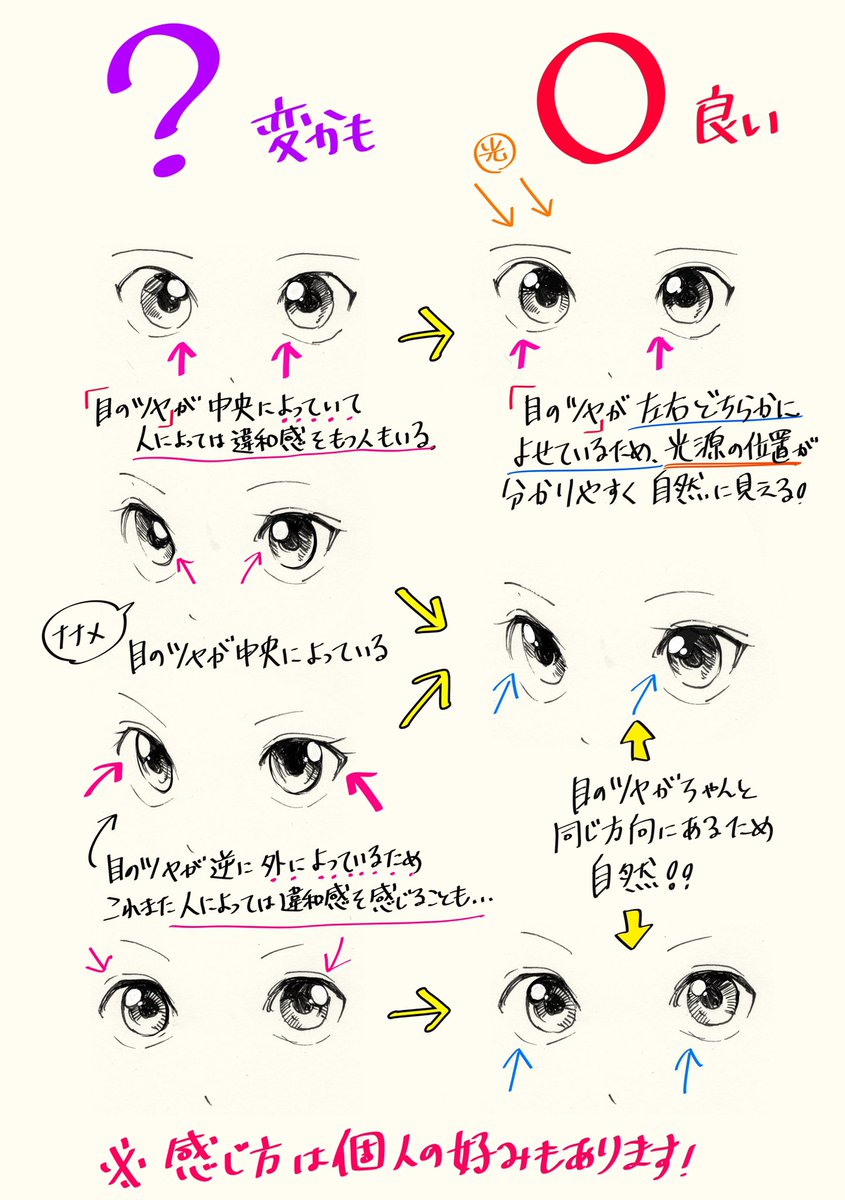 ? 変かも
○ 良い
光
「目のツヤ」が中央によっていて
人によっては違和感をもつ人もいる。
「目のツヤ」が左右どちらかに
よせているため、光源の位置が
分かりやすく自然に見える!
ナナメ
目のツヤが中央によっている
目のツヤが逆に外によっているため
これまた人によっては違和感を感じることも…
目のツヤがちゃんと
同じ方向にあるため
自然!!
※感じ方は個人の好みもあります!